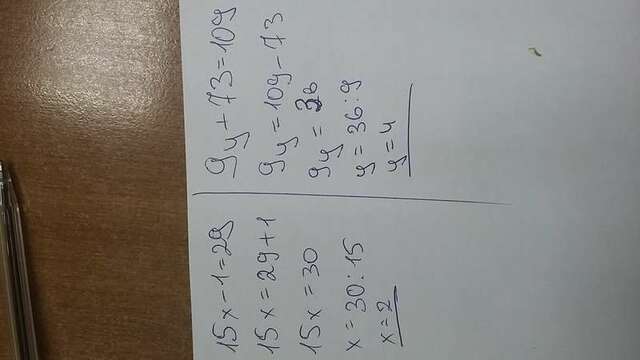 15x-1=29
15x=29+1
15x=30
x=30:15
x=2
9y+73=109
9y=109-73
9y=36
y=36:9
y=4